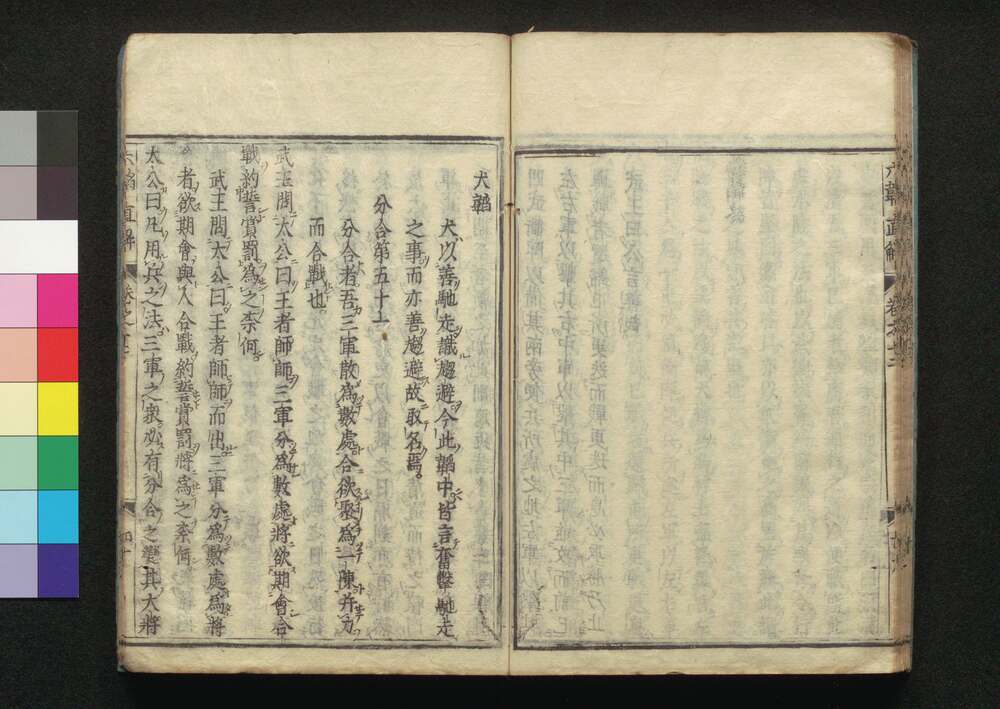 六韜直解 卷之三
犬韜
犬以善馳走識趨避今此韜中皆言奮擊馳走
之事而亦善趨避故取名焉
分合第五十一
分合者吾三軍散爲數處合欲聚爲一陳并力
而合戰也
武王問太公曰王者師師三軍分爲數處將欲期會合
戰約誓賞罰爲之柰何
武王問太公曰王者師師而出三軍分爲數處爲將
者欲期會與人合戰約誓賞罰將爲之柰何
太公曰凡用兵之法三軍之衆必有分合之變其大將
六韜直解 卷之三 四十